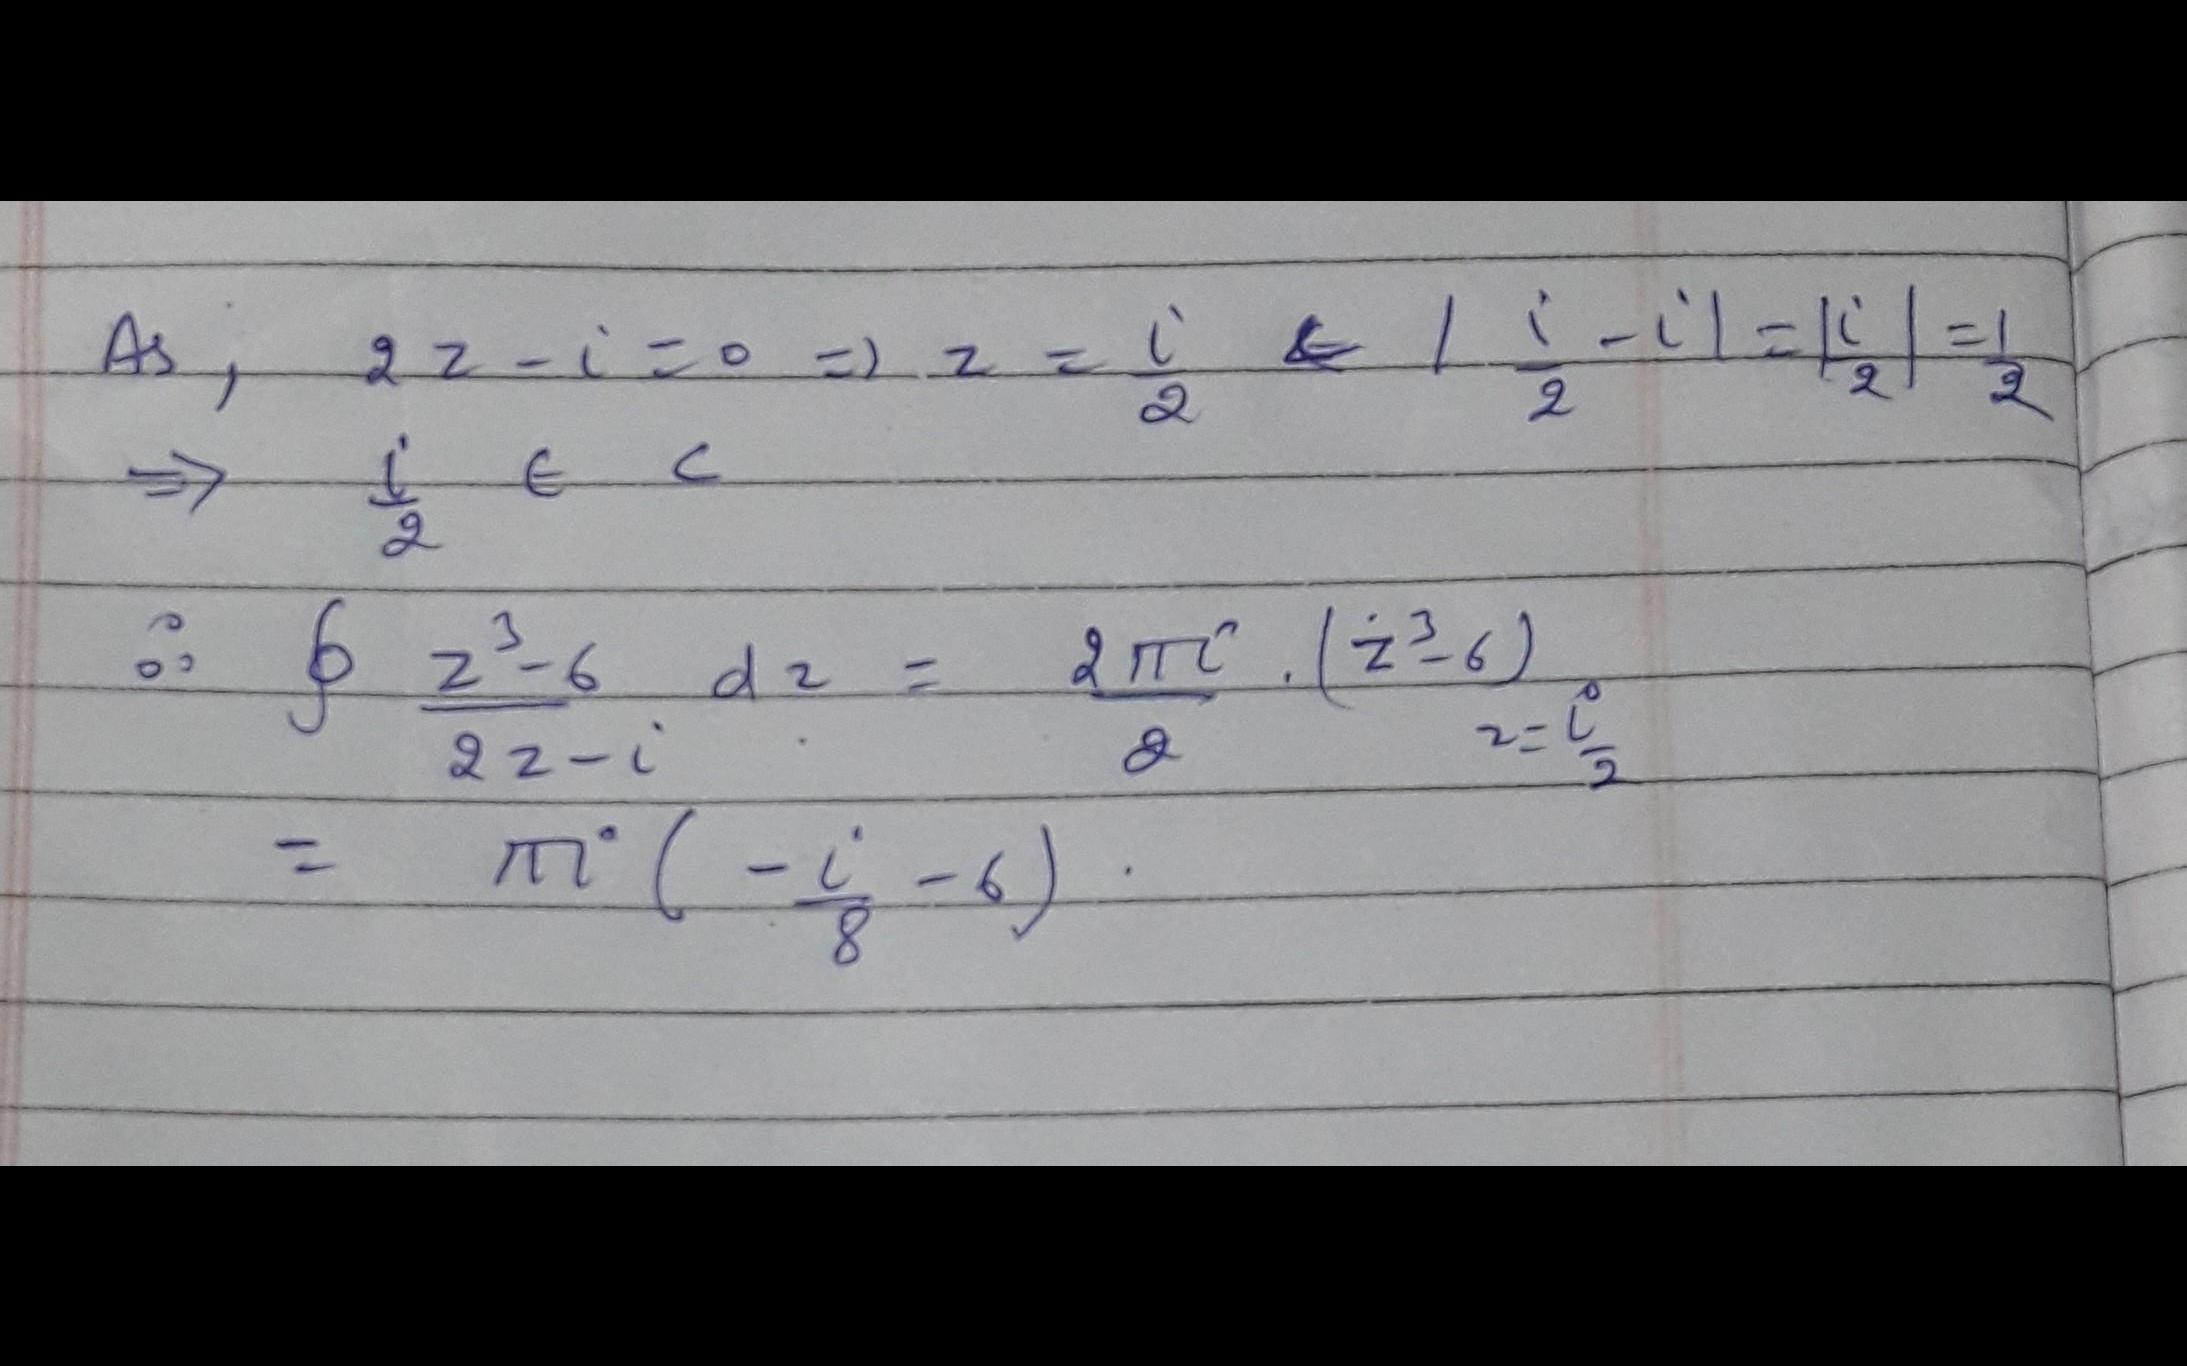 As, 2z - i = 0 => z = i/2 & | i/2 - i | = | i/2 | = 1/2
⇒ i/2 ∈ C
∴ ∮ (z³-6)/(2z-i) dz = 2πi/2 . (z³-6) z=i/2
= πi ( -i/8 - 6 ) .